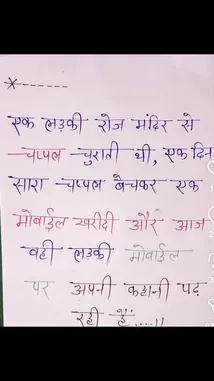 *------
एक लडकी रोज मंदिर से
चप्पल चुराती थी, एक दिन
सारा चप्पल बेचकर एक
मोबाईल खरीदी और आज
वही लडकी मोबाईल
पर अपनी कहानी पढ़
रही हैं.....!!